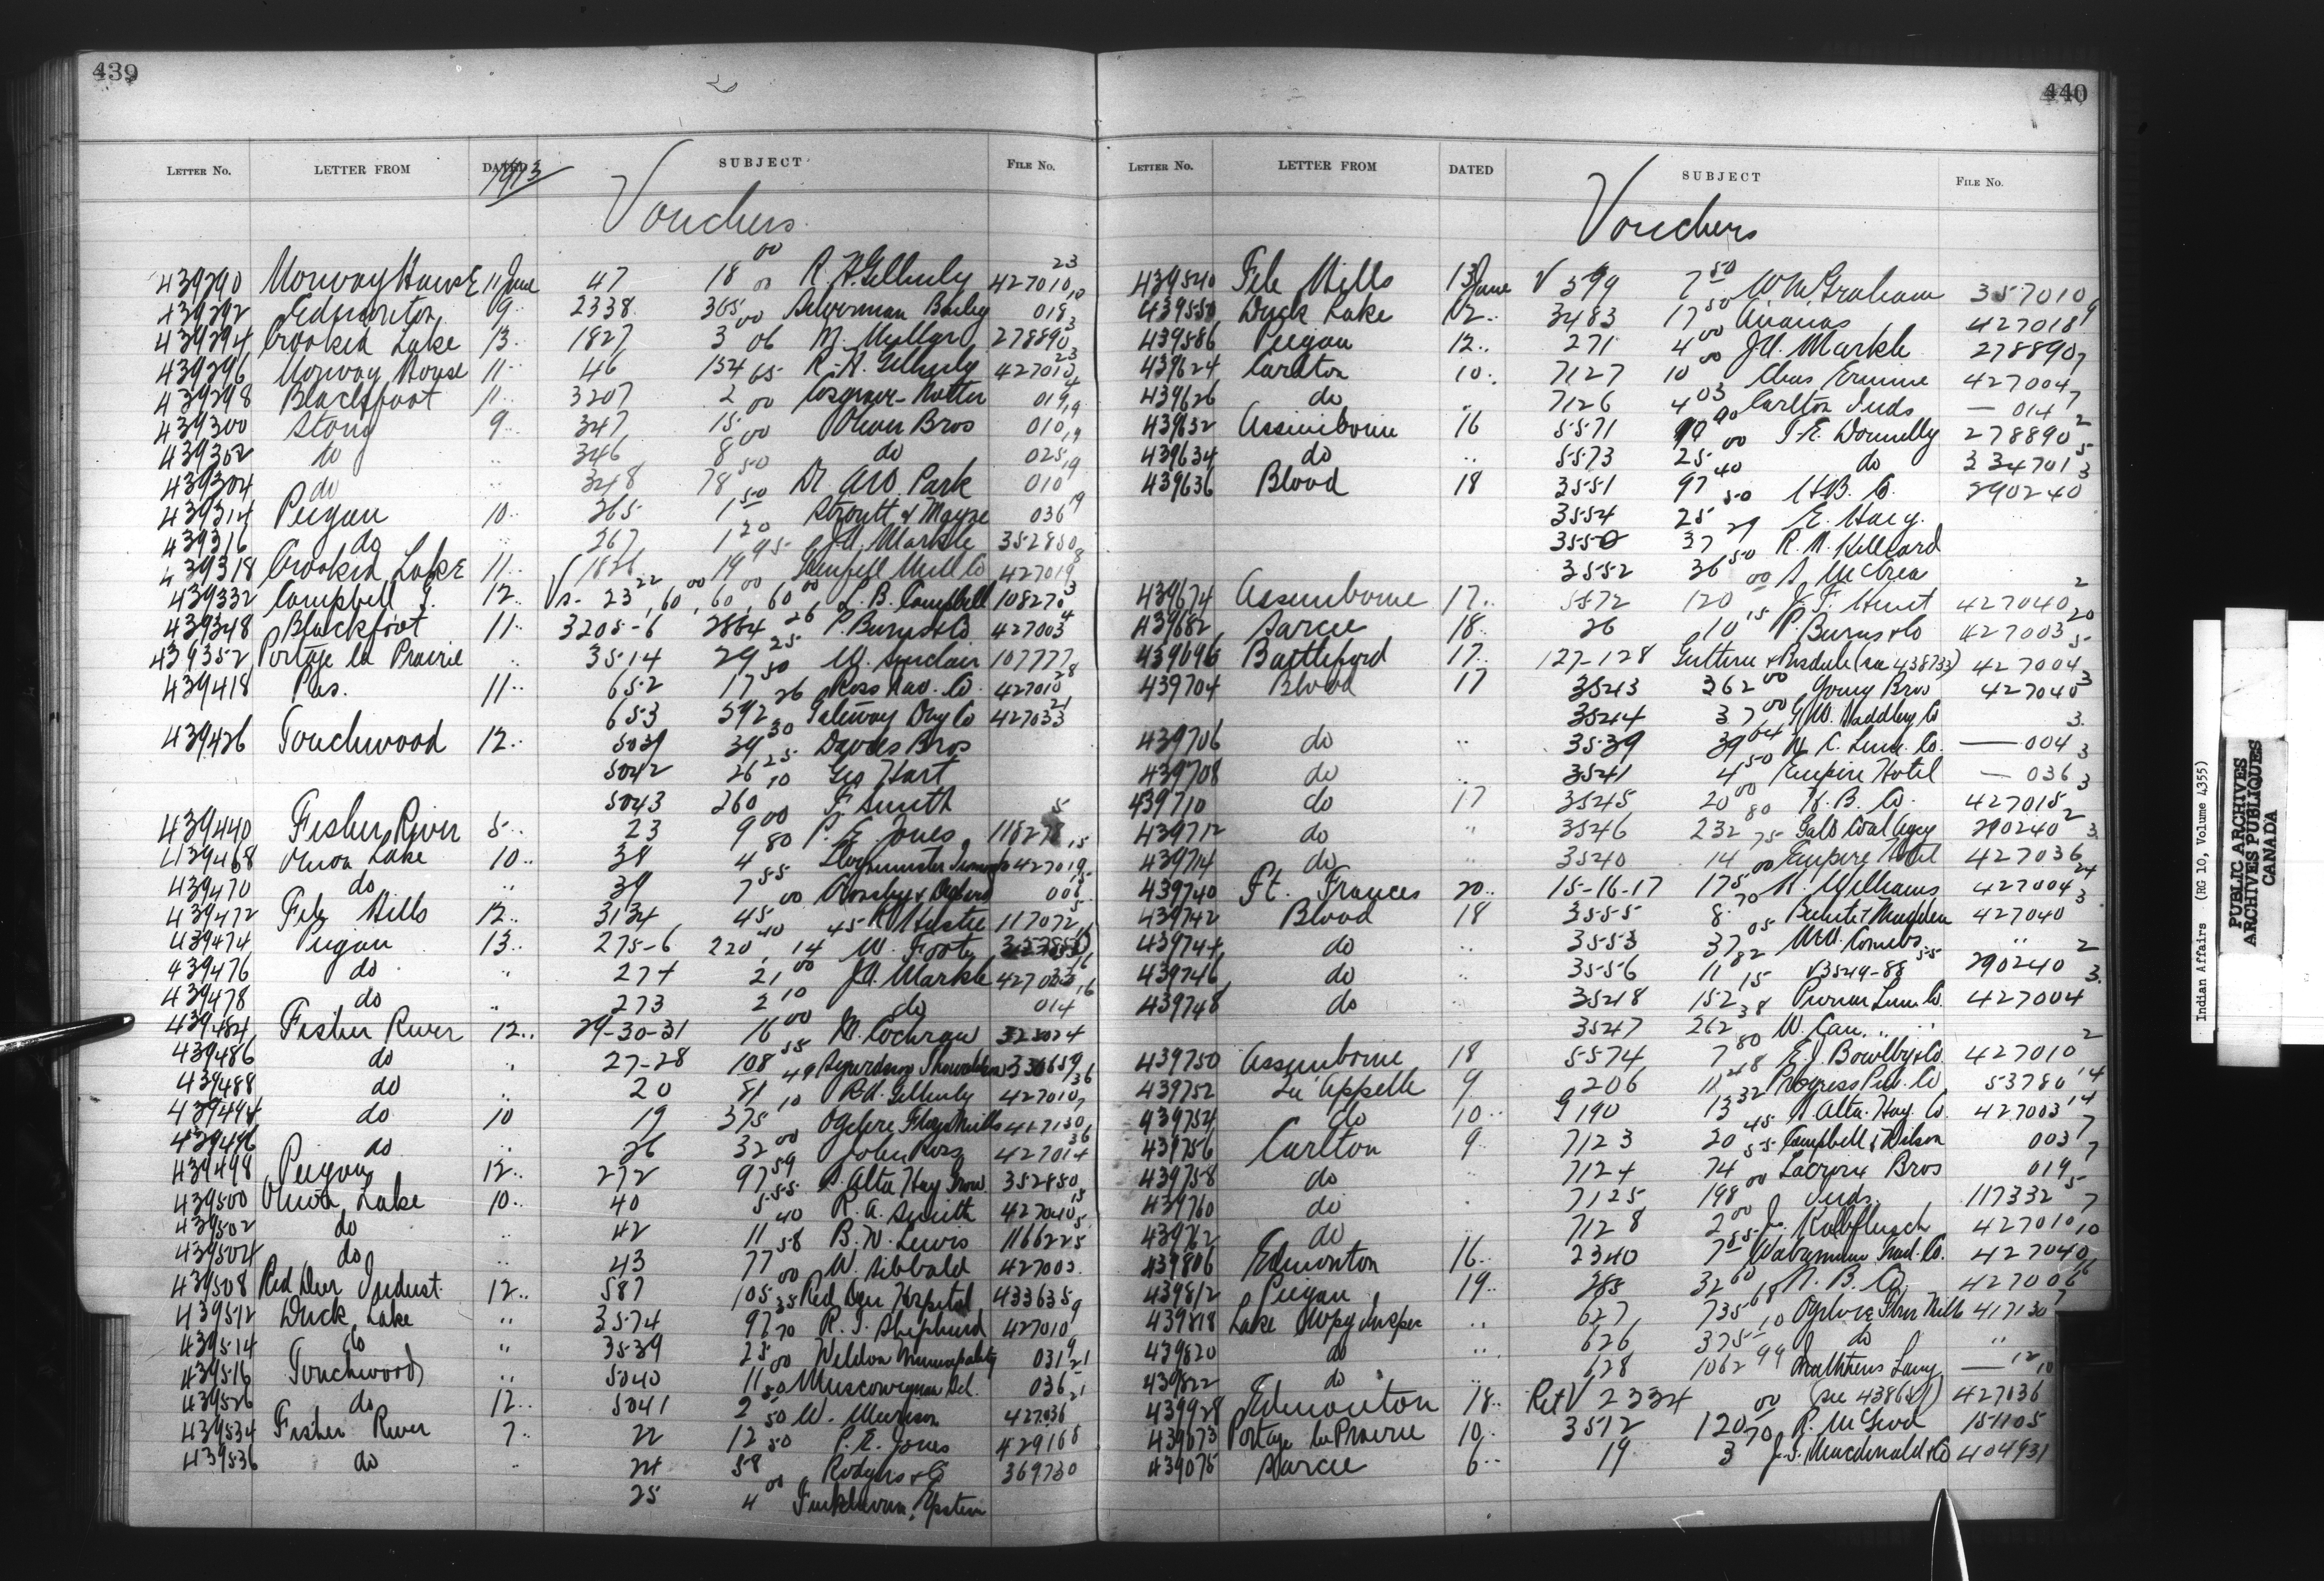 439
LETTER NO. LETTER FROM DATED SUBJECT FILE NO.
1913
Vouchers
439290 Norway House 11 June 47 18 00 R. H. Gilhuly 427010 23
439292 Edmonton 09 2338 365 00 Ackerman Bailey 018 10
439294 Crooked Lake 13 1827 3 00 M. Millar 278890 3
439296 Norway House 11 46 154 06 R. H. Gilhuly 427013 23
439298 Blackfoot 11 3207 2 65 Cosgrave 019 4
439300 Stony 9 347 15 00 Olson Bros 010 19
439302 do 346 8 00 do 025 19
439304 do 348 78 50 Dr Park 010 19
439314 Peigan 10 265 1 50 Stroutt & 036 19
439316 do 267 1 20 J.H. Markle 352850
439318 Crooked Lake 11 1826 19 95 Grenfell Mill Co 427019 8
439332 Campbell 12 Vs. 23 22, 60 00, 60 00, 60 00 L. B. Campbell 108270 3
439348 Blackfoot 11 3205-6 2864 26 P. Burns & Co 427003 4
439352 Portage la Prairie 3514 29 25 W. Sinclair 107777
439418 Pas. 11 652 17 50 Ross Nav. Co. 427010 28
653 592 26 Gateway Drug Co 427033 21
439426 Touchwood 12 5039 39 30 Davies Bros
5042 26 25 Geo Hart
5043 260 10 F. Smith
439440 Fisher River 5 23 9 00 P. E. Jones 118278 5
439468 Onion Lake 10 38 4 80 Lloydminster 427019 15
439470 do 39 7 55 006
439472 File Hills 12 3134 45 00 R. Hastie 117072 5
439474 Peigan 13 275-6 220 40, 14 45 W. Foote
439476 do 274 21 J.H. Markle 427033 16
439478 do 273 2 10 do 014 16
439484 Fisher River 12 29-30-31 16 00 N. Cochrane 323024
439486 do 27-28 108 55 336659
439488 do 20 81 49 R.H. Gilhuly 427010 36
439494 do 10 19 375 10 Ogilvie Flour Mills 417130 7
439496 do 26 32 00 John Ross 427014 36
439498 Peigan 12 272 97 59 S. Alta Hay Grow. 352850
439500 Onion Lake 10 40 5 55 R. A. Smith 427010 15
439502 do 42 11 40 B. N. Lewis 116622 5
439504 do 43 77 58 W. Sibbald 427003
439508 Red Deer Indust. 12 587 105 00 Red Deer Hospital 433635
439512 Duck Lake 3574 97 35 R. J. Shepherd 427010 9
439514 do 3539 25 70 Weldon Municipality 031 9
439516 Touchwood 5040 11 00 Muscowequan Scl. 036 21
439526 do 12 5041 2 50 W. Murison 427036 21
439534 Fisher River 7 22 12 50 P. E. Jones 429168
439536 do 24 58 50 Rodgers & Co 369730
25 4 00 Finkleman, Epstein
440
LETTER NO. LETTER FROM DATED SUBJECT FILE NO.
Vouchers
439540 File Hills 13 June V 399 7 50 W M Graham 357010
439550 Duck Lake 12 3483 17 50 Ananas 427018 9
439586 Peigan 12 271 4 00 J.H. Markle 278890
439624 Carlton 10 7127 10 00 Chas Ermine 427004 7
439626 do 7126 4 03 Carlton Inds — 014 7
439632 Assiniboine 16 5571 T. E. Donnelly 278890 2
439634 do 5573 25 00 do 334701 5
439636 Blood 18 3551 97 40 H.B. Co. 290240 3
3554 25 50 E. Haig.
3550 37 29 R. N. Hilliard
3552 36 50 A. McCrea
439674 Assiniboine 17 5572 120 00 J. F. Hunt 427040 2
439682 Sarcee 18 26 10 15 P. Burns & Co 427003 20
439696 Battleford 17 127-128 (see 438733) 427004 5
439704 Blood 17 3543 362 00 Young Bros 427040 3
3544 37 00 G.W. Haddley Co
439706 do 3539 39 64 Lum. Co. — 004 3
439708 do 3541 4 50 Empire Hotel — 036 3
439710 do 17 3545 20 00 H. B. Co. 427015 3
439712 do 3546 232 80 Galt Coal Agcy 290240 2
439714 do 3540 14 75 Empire Hotel 427036 3
439740 Ft. Frances 20 15-16-17 175 00 H. Williams 427004 24
439742 Blood 18 3555 8 70 427040 3
439744 do 3553 37 05 "
439746 do 3556 11 82 V3549-88 55 290240 2
439748 do 3548 152 15 Lum Co. 427004 3
3547 262 38 W. Carr
439750 Assiniboine 18 5574 7 80 E. J. Bowlby & Co. 427010 2
439752 Qu'Appelle 9 206 11 48 Progress Pub. Co 53780 14
439754 do 10 190 13 32 Alta. Hay. Co. 427003 14
439756 Carlton 9 7123 20 45 Campbell & Wilson 003 7
439758 do 7124 74 55 Lacroix Bros 019 7
439760 do 7125 198 00 Inds. 117332 5
439762 do 7128 2 00 J. Kalbfleisch 427010 7
439806 Edmonton 16 2340 7 85 Wabamun Trad. Co. 427040 10
439812 Peigan 19 285 32 60 H. B. Co. 427006 16
439818 Lake Wpg Inspec 627 735 68 Ogilvie Flour Mills 417130 7
439820 do 626 375 10 do "
439822 do 628 1062 99 Matthews Laing — 12
439928 Edmonton 18 Ret V 2334 (see 438651) 427036 10
439673 Portage la Prairie 10 3512 120 00 R. McLeod 151105
439075 Sarcee 6 19 3 70 J. S. Macdonald & Co 404931
Indian Affairs (RG 10, Volume 4355)
PUBLIC ARCHIVES
ARCHIVES PUBLIQUES
CANADA